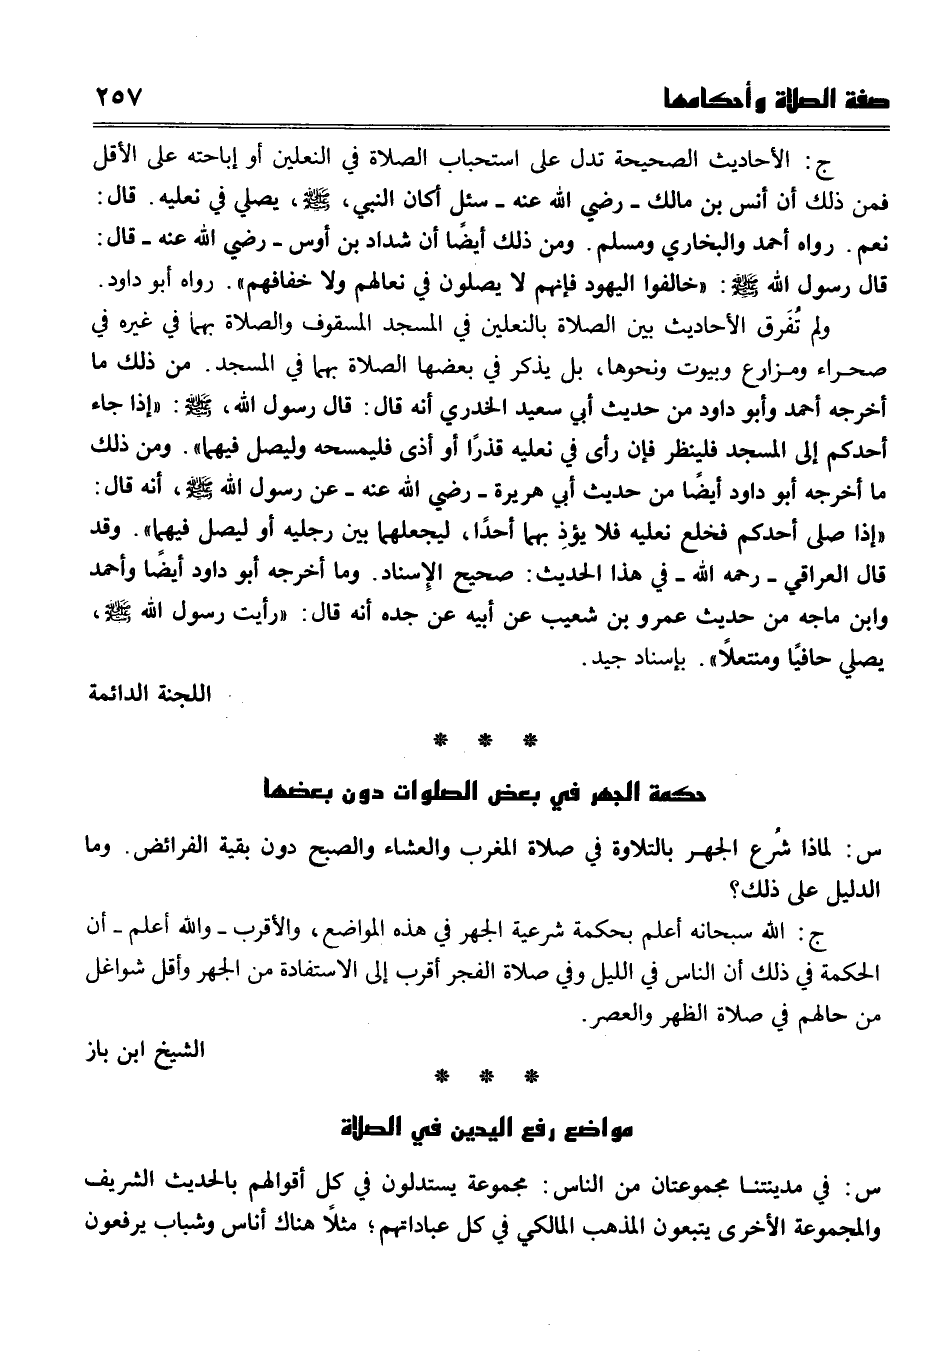 صفة الصلاة وأحكامها ٢٥٧
ج: الأحاديث الصحيحة تدل على استحباب الصلاة في النعلين أو إباحته على الأقل
فمن ذلك أن أنس بن مالك ـ رضي الله عنه ـ سئل أكان النبي، ﷺ، يصلي في نعليه. قال:
نعم. رواه أحمد والبخاري ومسلم. ومن ذلك أيضًا أن شداد بن أوس ـ رضي الله عنه ـ قال:
قال رسول الله ﷺ: «خالفوا اليهود فإنهم لا يصلون في نعالهم ولا خفافهم». رواه أبو داود.
ولم تُفَرق الأحاديث بين الصلاة بالنعلين في المسجد المسقوف والصلاة بهما في غيره في
صحراء ومزارع وبيوت ونحوها، بل يذكر في بعضها الصلاة بهما في المسجد. من ذلك ما
أخرجه أحمد وأبو داود من حديث أبي سعيد الخدري أنه قال: قال رسول الله، ﷺ: «إذا جاء
أحدكم إلى المسجد فلينظر فإن رأى في نعليه قذرًا أو أذى فليمسحه وليصل فيهما». ومن ذلك
ما أخرجه أبو داود أيضًا من حديث أبي هريرة ـ رضي الله عنه ـ عن رسول الله ﷺ، أنه قال:
«إذا صلى أحدكم فخلع نعليه فلا يؤذِ بهما أحدًا، ليجعلهما بين رجليه أو ليصل فيهما». وقد
قال العراقي ـ رحمه الله ـ في هذا الحديث: صحيح الإسناد. وما أخرجه أبو داود أيضًا وأحمد
وابن ماجه من حديث عمرو بن شعيب عن أبيه عن جده أنه قال: «رأيت رسول الله ﷺ،
يصلي حافيًا ومنتعلًا». بإسناد جيد.
اللجنة الدائمة
* * *
حكمة الجهر في بعض الصلوات دون بعضها
س: لماذا شُرع الجهر بالتلاوة في صلاة المغرب والعشاء والصبح دون بقية الفرائض. وما
الدليل على ذلك؟
ج: الله سبحانه أعلم بحكمة شرعية الجهر في هذه المواضع، والأقرب ـ والله أعلم ـ أن
الحكمة في ذلك أن الناس في الليل وفي صلاة الفجر أقرب إلى الاستفادة من الجهر وأقل شواغل
من حالهم في صلاة الظهر والعصر.
الشيخ ابن باز
* * *
مواضع رفع اليدين في الصلاة
س: في مدينتنا مجموعتان من الناس: مجموعة يستدلون في كل أقوالهم بالحديث الشريف
والمجموعة الأخرى يتبعون المذهب المالكي في كل عباداتهم؛ مثلًا هناك أناس وشباب يرفعون